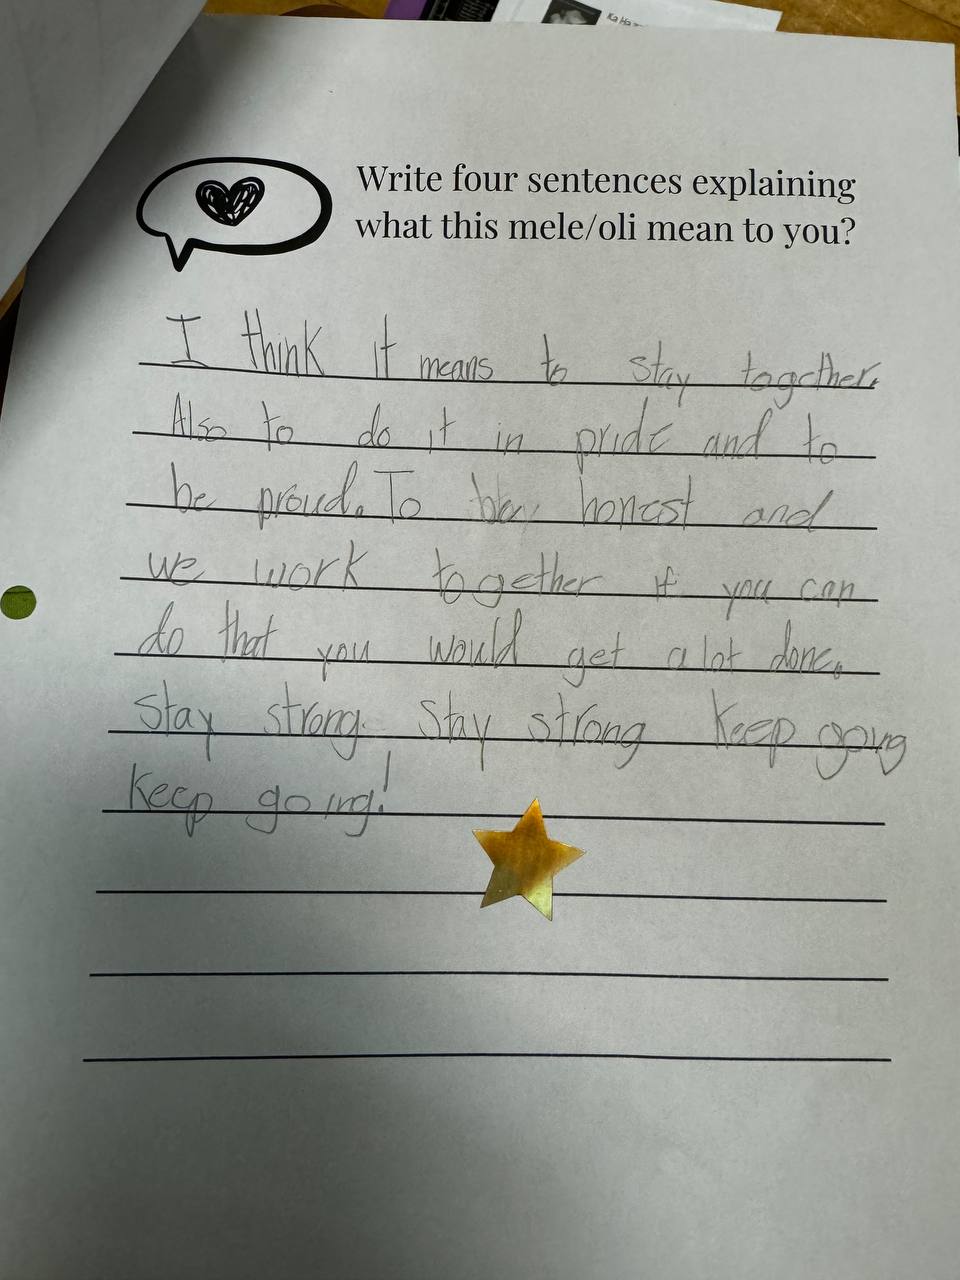 Ka Ha
Write four sentences explaining
what this mele/oli mean to you?
I think it means to stay together.
Also to do it in pride and to
be proud. To honest and
we work together if you can
do that you would get a lot done.
Stay strong. Stay strong Keep going
Keep going!